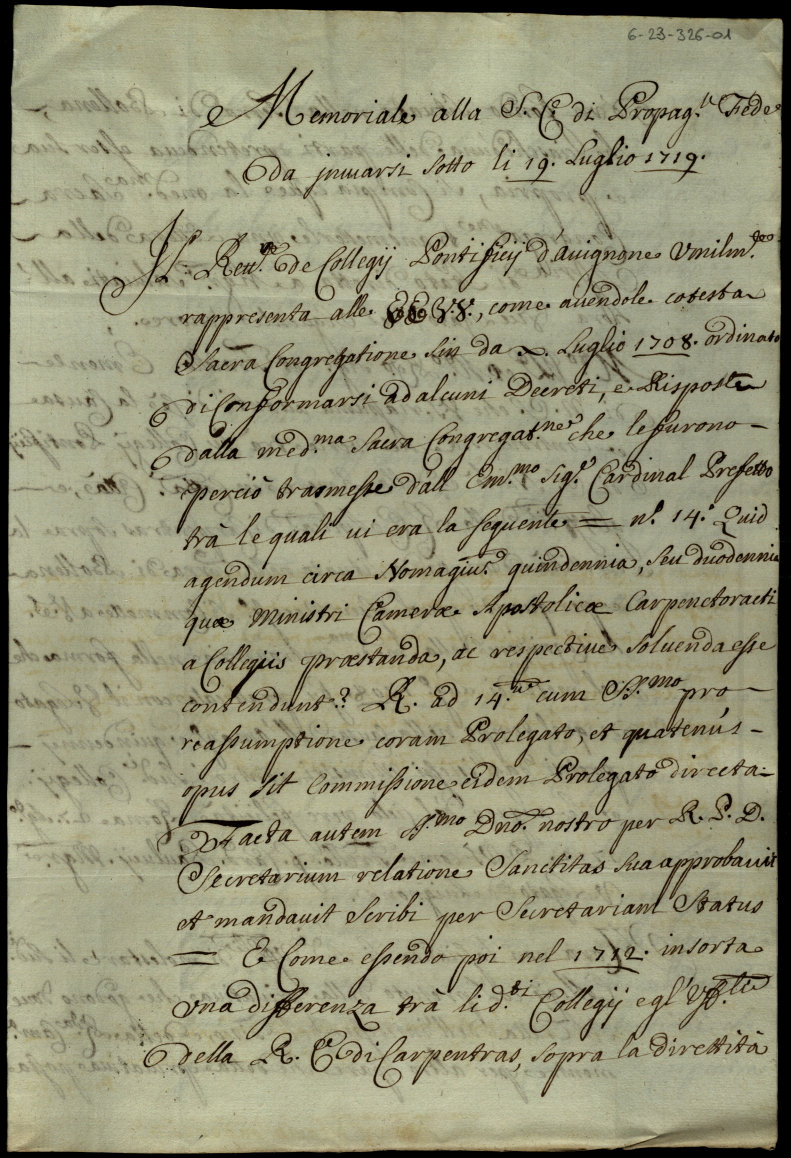 6-23-326-01
Memoriale alla S. C.e di Propag.e Fede
da jnuiarsi sotto li 19. Luglio 1719.
Il Rett.re de Collegij Pontificij d'Auignone Vmilm.te
rappresenta alle EE. VV., come auendole cotesta
Sacra Congregatione sin da Luglio 1708. ordinato
di Conformarsi ad alcuni Decreti, e Risposte
dalla med.ma Sacra Congregat.ne che le furono
perciò trasmesse dall' Em.mo Sig.r Cardinal Prefetto
trà le quali ui era la seguente = n.o 14.o Quid
agendum circa quindennia, seu duodennia
quæ Ministri Cameræ Apostolicæ Carpenctoracti
a Collegiis præstanda, ac respectiue soluenda esse
contendunt? R. ad 14.m cum SS.mo pro
reassumptione coram Prolegato, et quatenús
opus sit Commissione eidem Prolegato directa
Facta autem SS.mo Dno. nostro per R. P. D.
Secretarium relatione Sanctitas sua approbauit
et mandauit scribi per Secretariam Status
= E Come essendo poi nel 1712. insorta
una differenza trà li d.ti Collegij e gl'
della R. C. di Carpentras, sopra la direttità